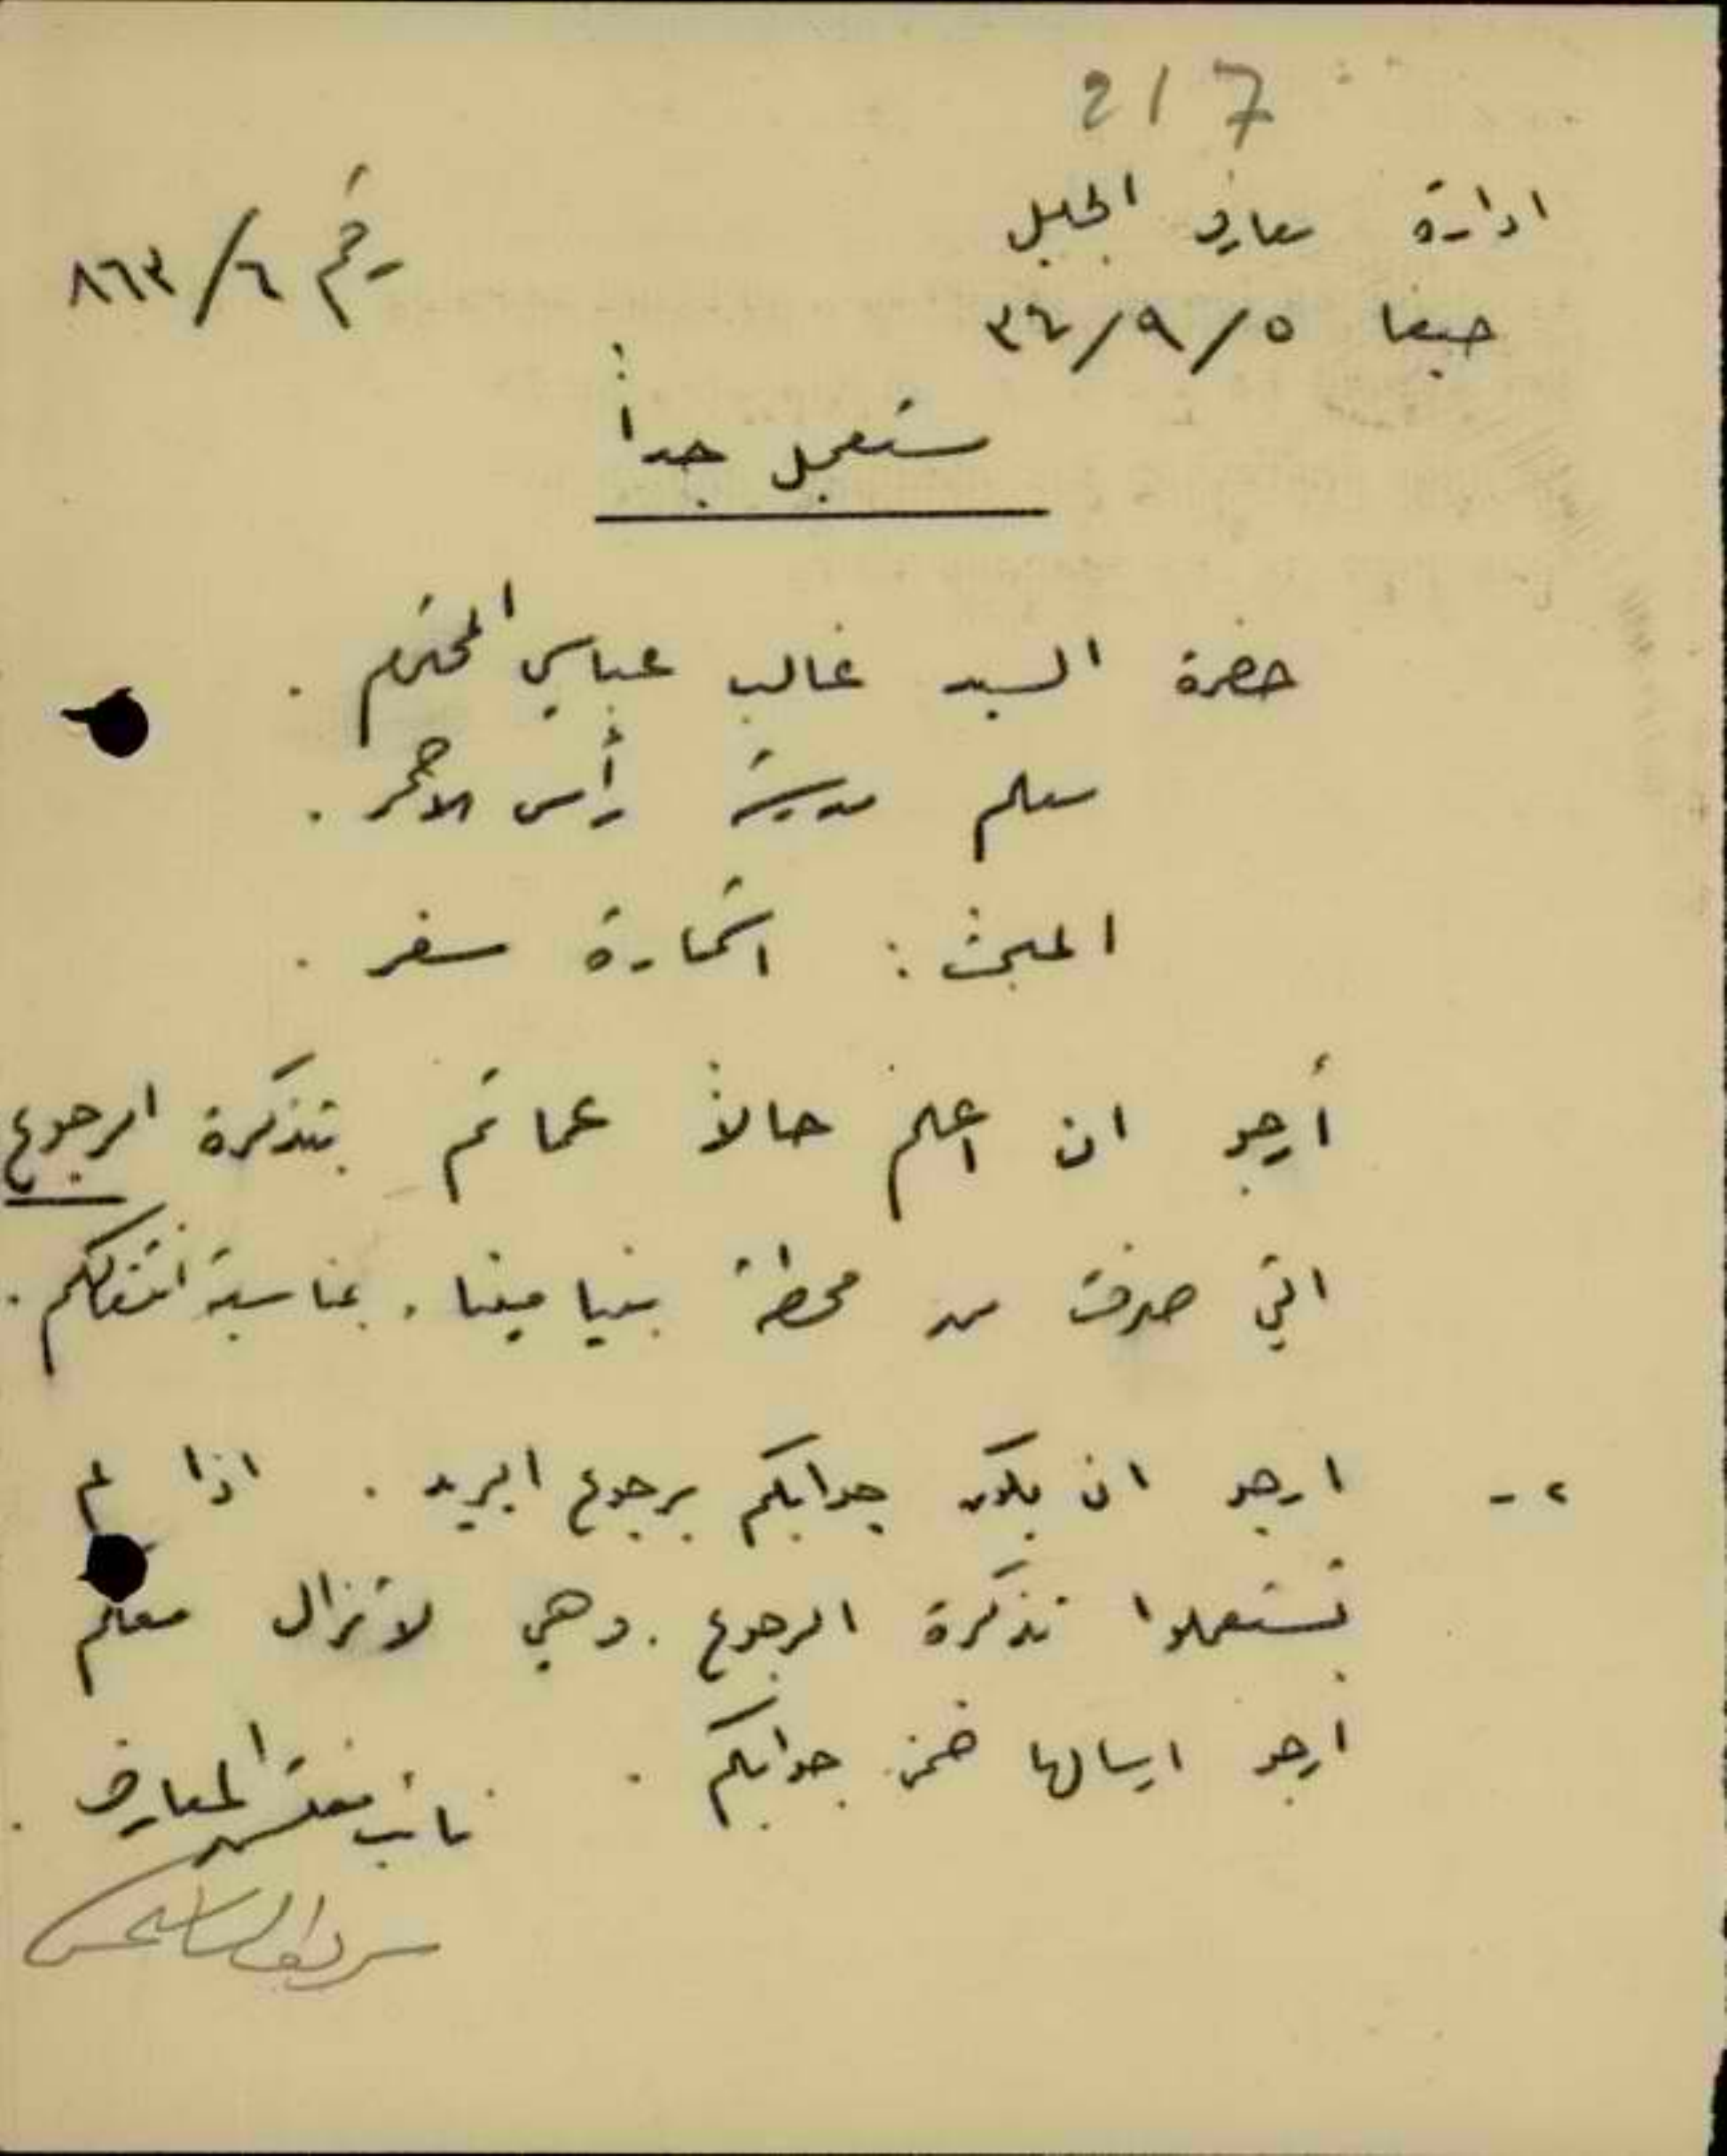 217
ادارة معارف الجليل
رقم ٨٦٣/٦
حيفا ٣٤/٩/٥
مستعجل جداً
حضرة السيد غالب عباسي المحترم .
معلم مدرسة رأس الاحمر .
المبحث : استمارة سفر .
أرجو ان اعلم حالاً عما تم بتذكرة الرجوع
التي صرفت من محطة بنيامينا ، بمناسبة انتقالكم .
٢- ارجو ان يكون جوابكم برجوع البريد . اذا لم
تستعملوا تذكرة الرجوع . وهي لا تزال معكم
ارجو ارسالها ضمن جوابكم .
نائب مفتش المعارف .